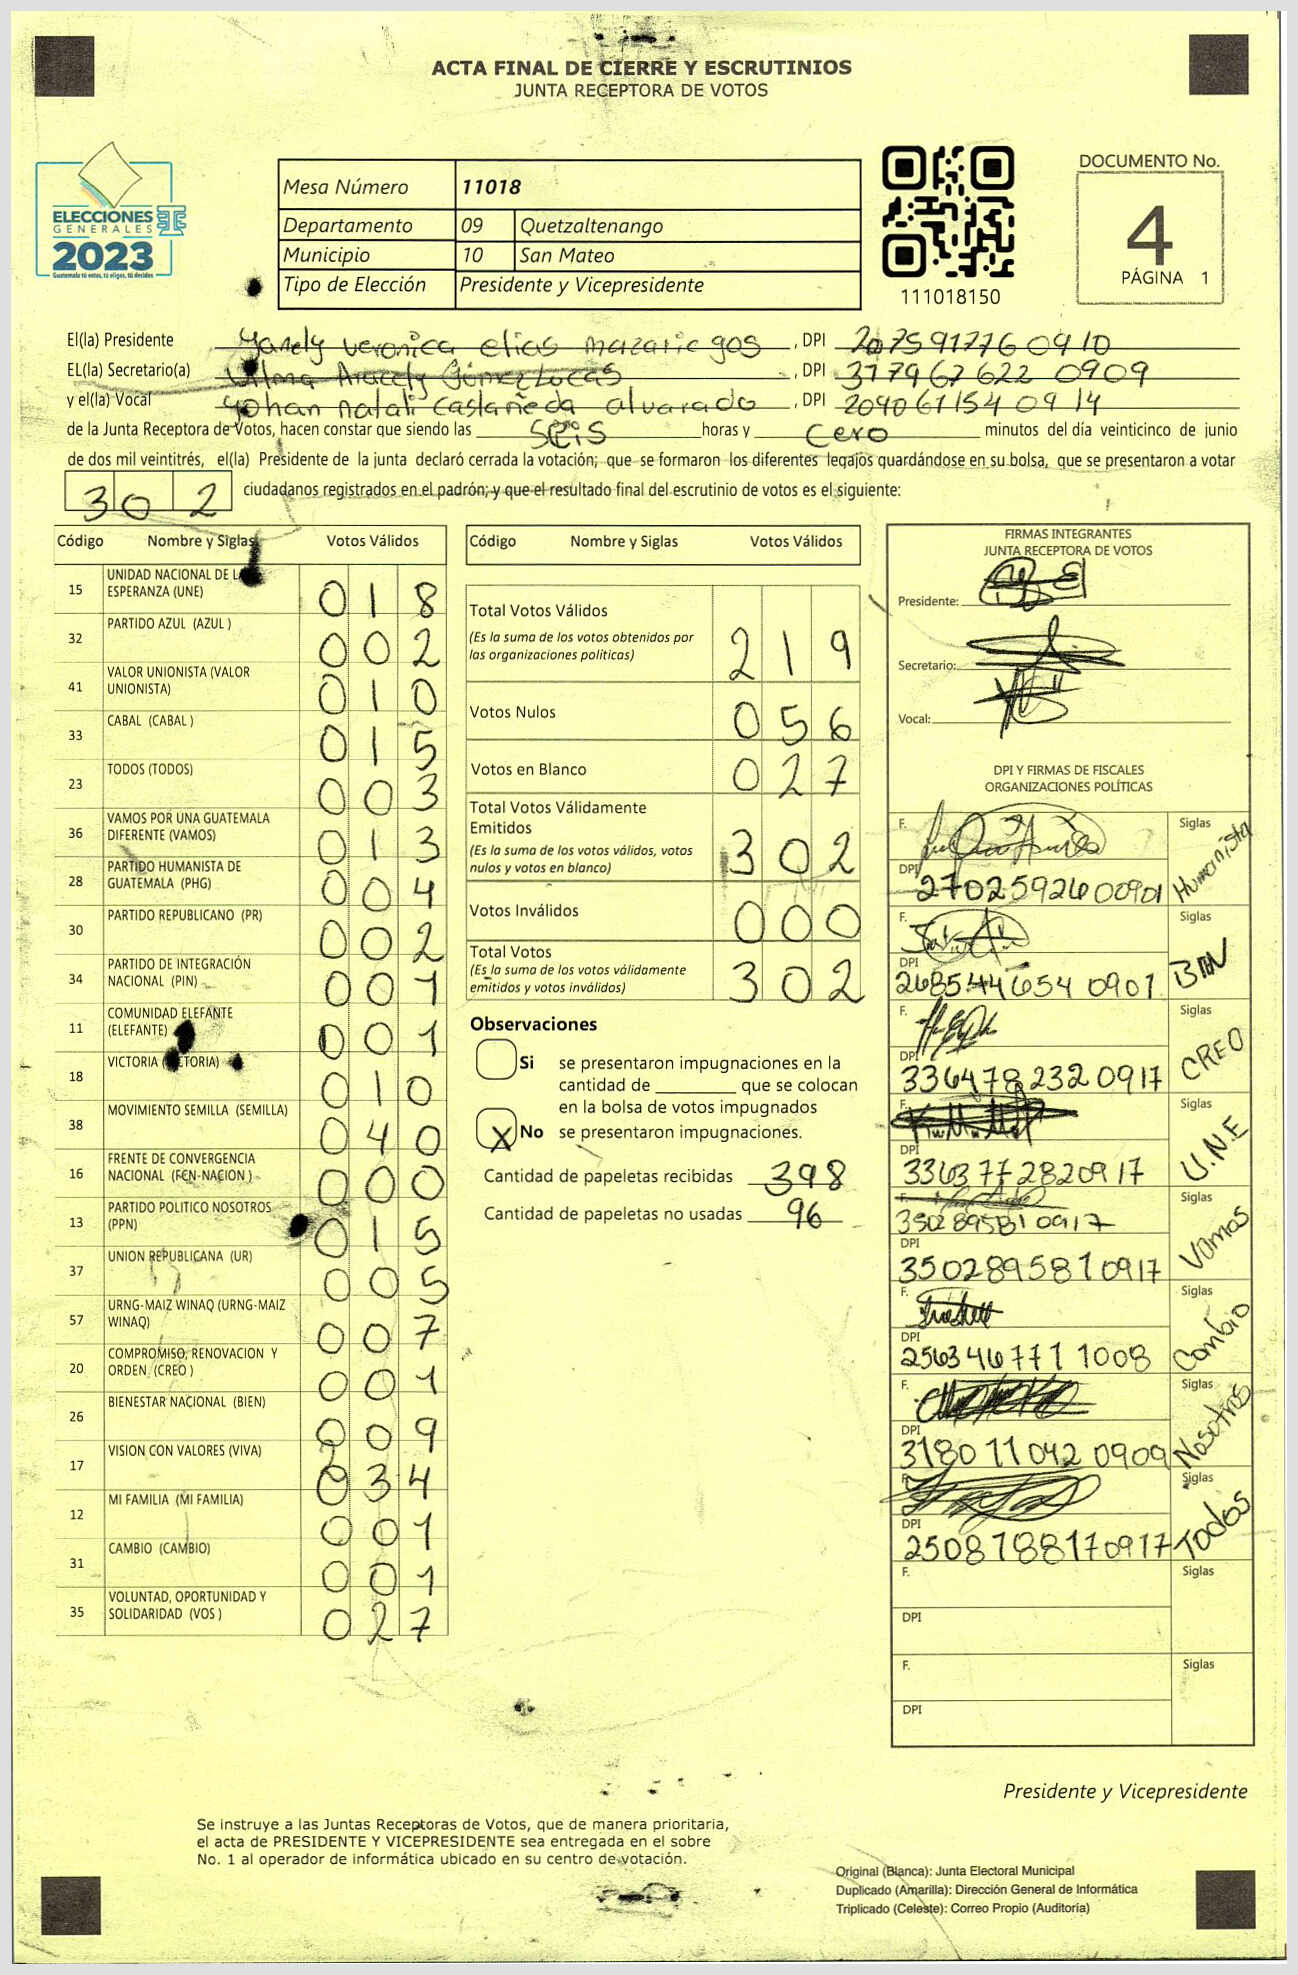 ACTA FINAL DE CIERRE Y ESCRUTINIOS
JUNTA RECEPTORA DE VOTOS
ELECCIONES
GENERALES
2023
Guatemala tú votas, tú eliges, tú decides
Mesa Número 11018
Departamento 09 Quetzaltenango
Municipio 10 San Mateo
Tipo de Elección Presidente y Vicepresidente
111018150
DOCUMENTO No.
4
PÁGINA 1
El(la) Presidente Yandy veronica elias mazariegos, DPI 2075917760910
EL(la) Secretario(a) Vilma Aracely Gómez Lucas, DPI 3179676220909
y el(la) Vocal Yohan natali castañeda alvarado, DPI 2090671540914
de la Junta Receptora de Votos, hacen constar que siendo las seis horas y cero minutos del día veinticinco de junio
de dos mil veintitrés, el(la) Presidente de la junta declaró cerrada la votación; que se formaron los diferentes legajos quardándose en su bolsa, que se presentaron a votar
302 ciudadanos registrados en el padrón; y que el resultado final del escrutinio de votos es el siguiente:
Código Nombre y Siglas Votos Válidos
15 UNIDAD NACIONAL DE LA ESPERANZA (UNE) 018
32 PARTIDO AZUL (AZUL ) 002
41 VALOR UNIONISTA (VALOR UNIONISTA) 010
33 CABAL (CABAL ) 015
23 TODOS (TODOS) 003
36 VAMOS POR UNA GUATEMALA DIFERENTE (VAMOS) 013
28 PARTIDO HUMANISTA DE GUATEMALA (PHG) 004
30 PARTIDO REPUBLICANO (PR) 002
34 PARTIDO DE INTEGRACIÓN NACIONAL (PIN) 001
11 COMUNIDAD ELEFANTE (ELEFANTE) 001
18 VICTORIA (VICTORIA) 010
38 MOVIMIENTO SEMILLA (SEMILLA) 040
16 FRENTE DE CONVERGENCIA NACIONAL (FCN-NACION ) 000
13 PARTIDO POLITICO NOSOTROS (PPN) 015
37 UNION REPUBLICANA (UR) 005
57 URNG-MAIZ WINAQ (URNG-MAIZ WINAQ) 007
20 COMPROMISO, RENOVACION Y ORDEN (CREO ) 001
26 BIENESTAR NACIONAL (BIEN) 009
17 VISION CON VALORES (VIVA) 034
12 MI FAMILIA (MI FAMILIA) 001
31 CAMBIO (CAMBIO) 001
35 VOLUNTAD, OPORTUNIDAD Y SOLIDARIDAD (VOS ) 027
Código Nombre y Siglas Votos Válidos
Total Votos Válidos 219
(Es la suma de los votos obtenidos por
las organizaciones políticas)
Votos Nulos 056
Votos en Blanco 027
Total Votos Válidamente
Emitidos 302
(Es la suma de los votos válidos, votos
nulos y votos en blanco)
Votos Inválidos 000
Total Votos 302
(Es la suma de los votos válidamente
emitidos y votos inválidos)
Observaciones
Si se presentaron impugnaciones en la
cantidad de ________ que se colocan
en la bolsa de votos impugnados
X No se presentaron impugnaciones.
Cantidad de papeletas recibidas 398
Cantidad de papeletas no usadas 96
FIRMAS INTEGRANTES
JUNTA RECEPTORA DE VOTOS
Presidente:
Secretario:
Vocal:
DPI Y FIRMAS DE FISCALES
ORGANIZACIONES POLÍTICAS
F. Siglas Humanista
DPI 2702592600901
F. Siglas BIEN
DPI 2685446540901
F. Siglas CREO
DPI 3364782320917
F. Siglas U.N.E
DPI 3363772820917
F. Siglas Vamos
3502895810917
DPI 3502895810917
F. Siglas Cambio
DPI 2563467711008
F. Siglas Nosotros
DPI 3180110420909
F. Siglas Todos
DPI 2508788170917
F. Siglas
DPI
F. Siglas
DPI
Presidente y Vicepresidente
Se instruye a las Juntas Receptoras de Votos, que de manera prioritaria,
el acta de PRESIDENTE Y VICEPRESIDENTE sea entregada en el sobre
No. 1 al operador de informática ubicado en su centro de votación.
Original (Blanca): Junta Electoral Municipal
Duplicado (Amarilla): Dirección General de Informática
Triplicado (Celeste): Correo Propio (Auditoría)